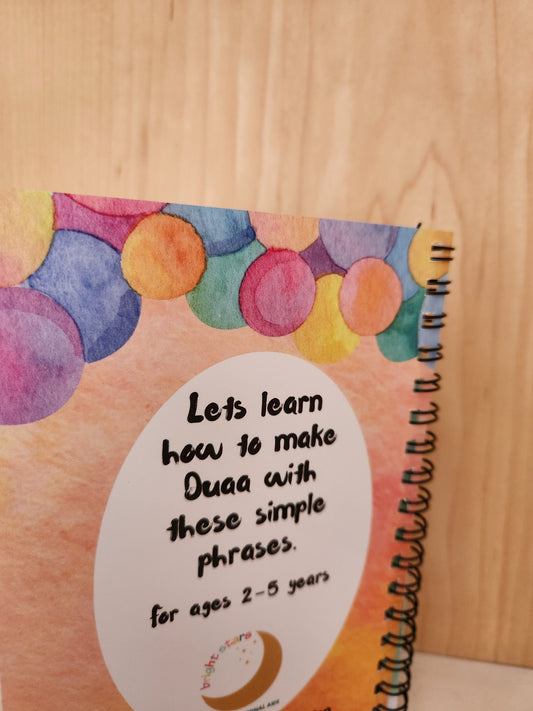 Lets learn
how to make
Duaa with
these simple
phrases.
for ages 2-5 years
bright stars